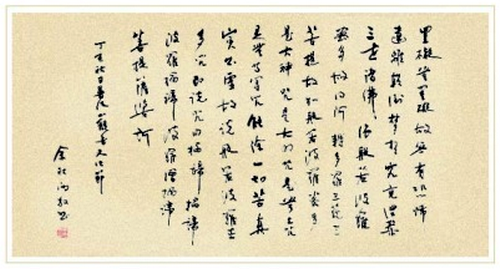 罣礙無罣礙故無有恐怖
遠離顛倒夢想究竟涅槃
三世諸佛依般若波羅
蜜多故得阿耨多羅三藐三
菩提故知般若波羅蜜多
是大神咒是大明咒是無上咒
是無等等咒能除一切苦真
實不虛故說般若波羅蜜
多咒即說咒曰揭諦揭諦
波羅揭諦波羅僧揭諦
菩提薩婆訶
丁亥